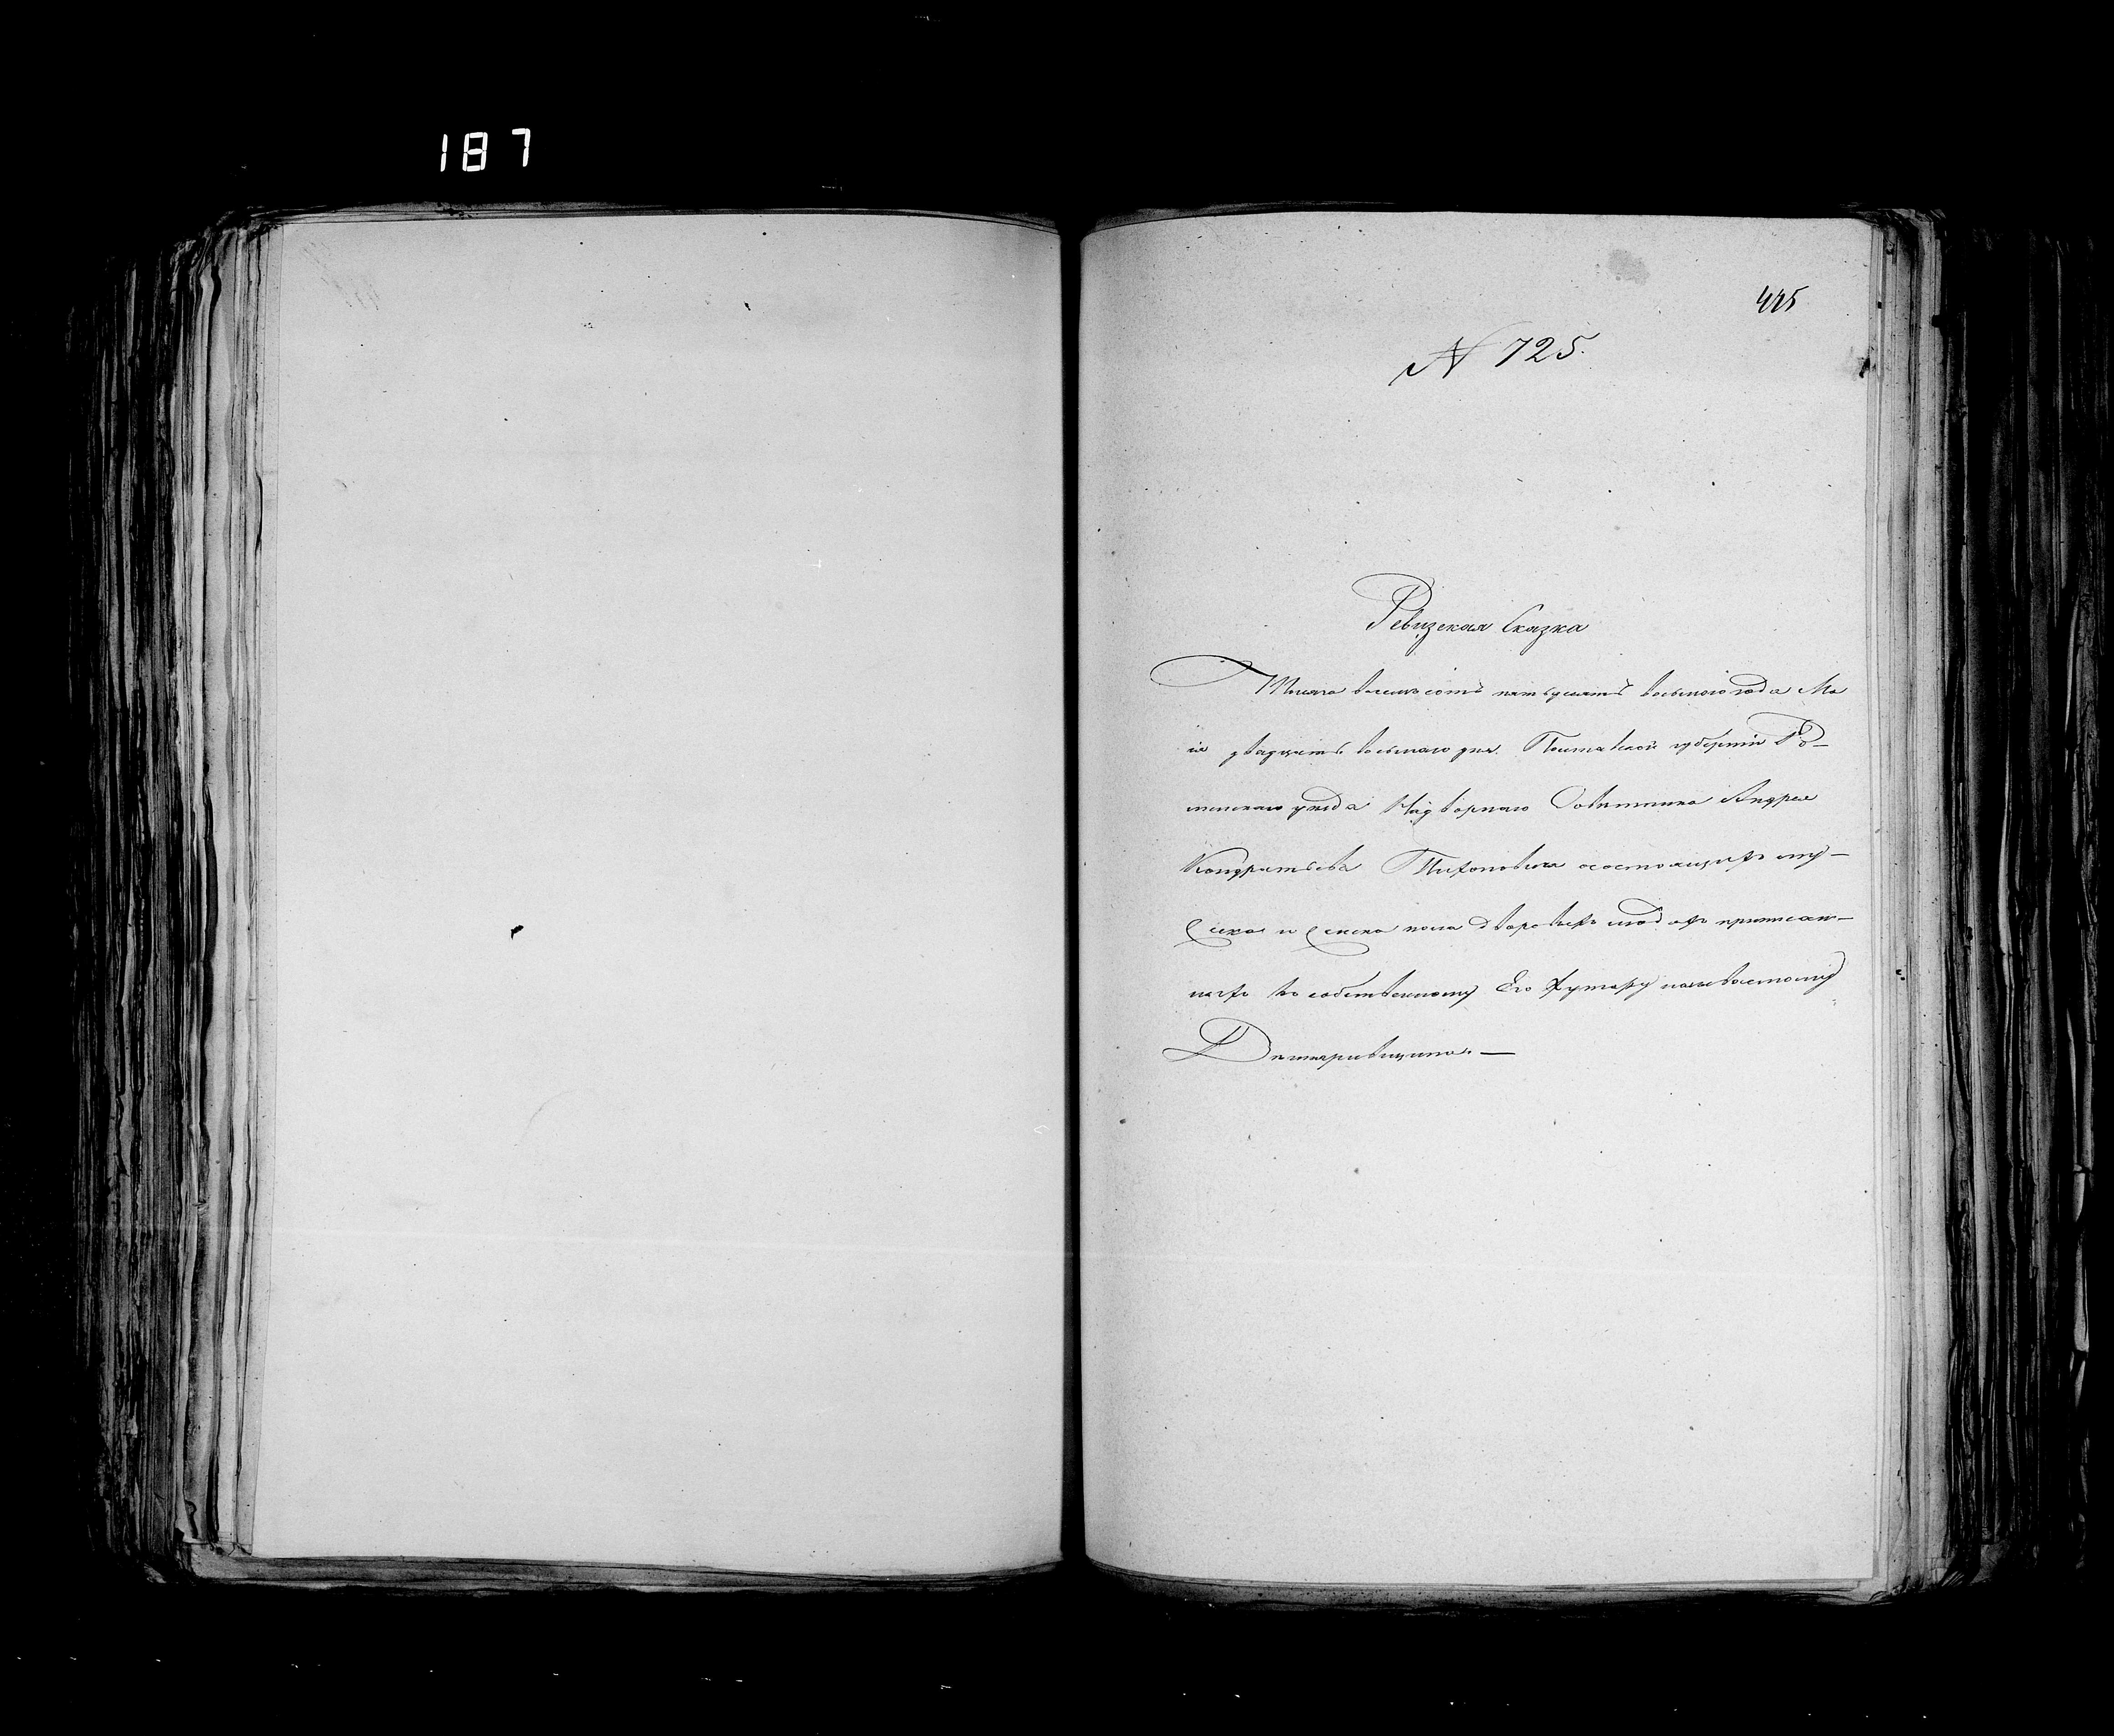 187
445
N 725.
Ревизская Сказка
Тысяча восемьсотъ пятьдесятъ восьмого года Ма
ія двадцать восьмаго дня. Полтавской губерніи Ро-
менскаго уезда Надворнаго Советника Андрея
Кондратьева Тихоновича осостоящихъ му-
жеска и женска пола дворовыхъ людяхъ приписан-
ныхъ къ собственному Его Хутору называемому